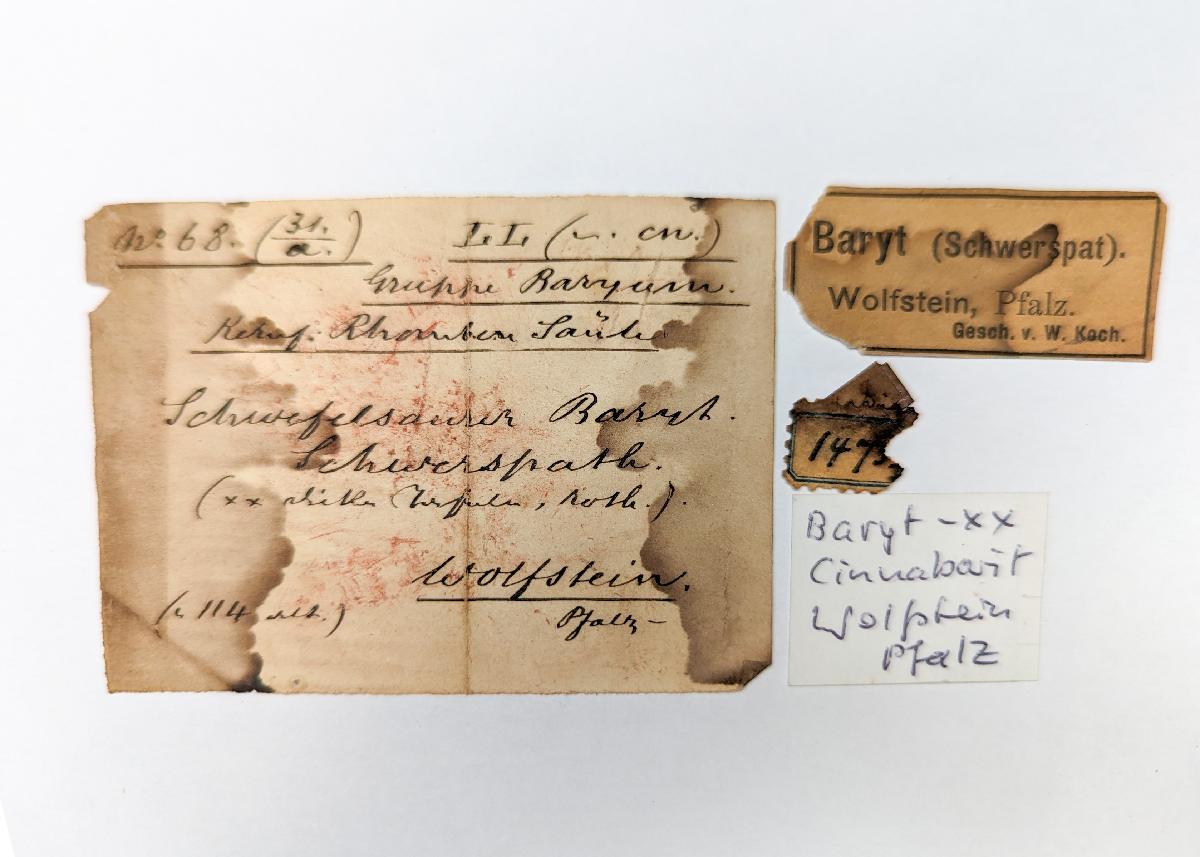 No. 68. (31./a.) LL (u. cn.)
Gruppe Baryum.
Rhomben Säule
Schwefelsaurer Baryt.
Schwerspath.
(xx dicke Tafeln, roth.).
Wolfstein.
(114 alt.) Pfalz-
Baryt (Schwerspat).
Wolfstein, Pfalz.
Gesch. v. W. Koch.
147
Baryt - xx
Cinnabarit
Wolfstein
Pfalz